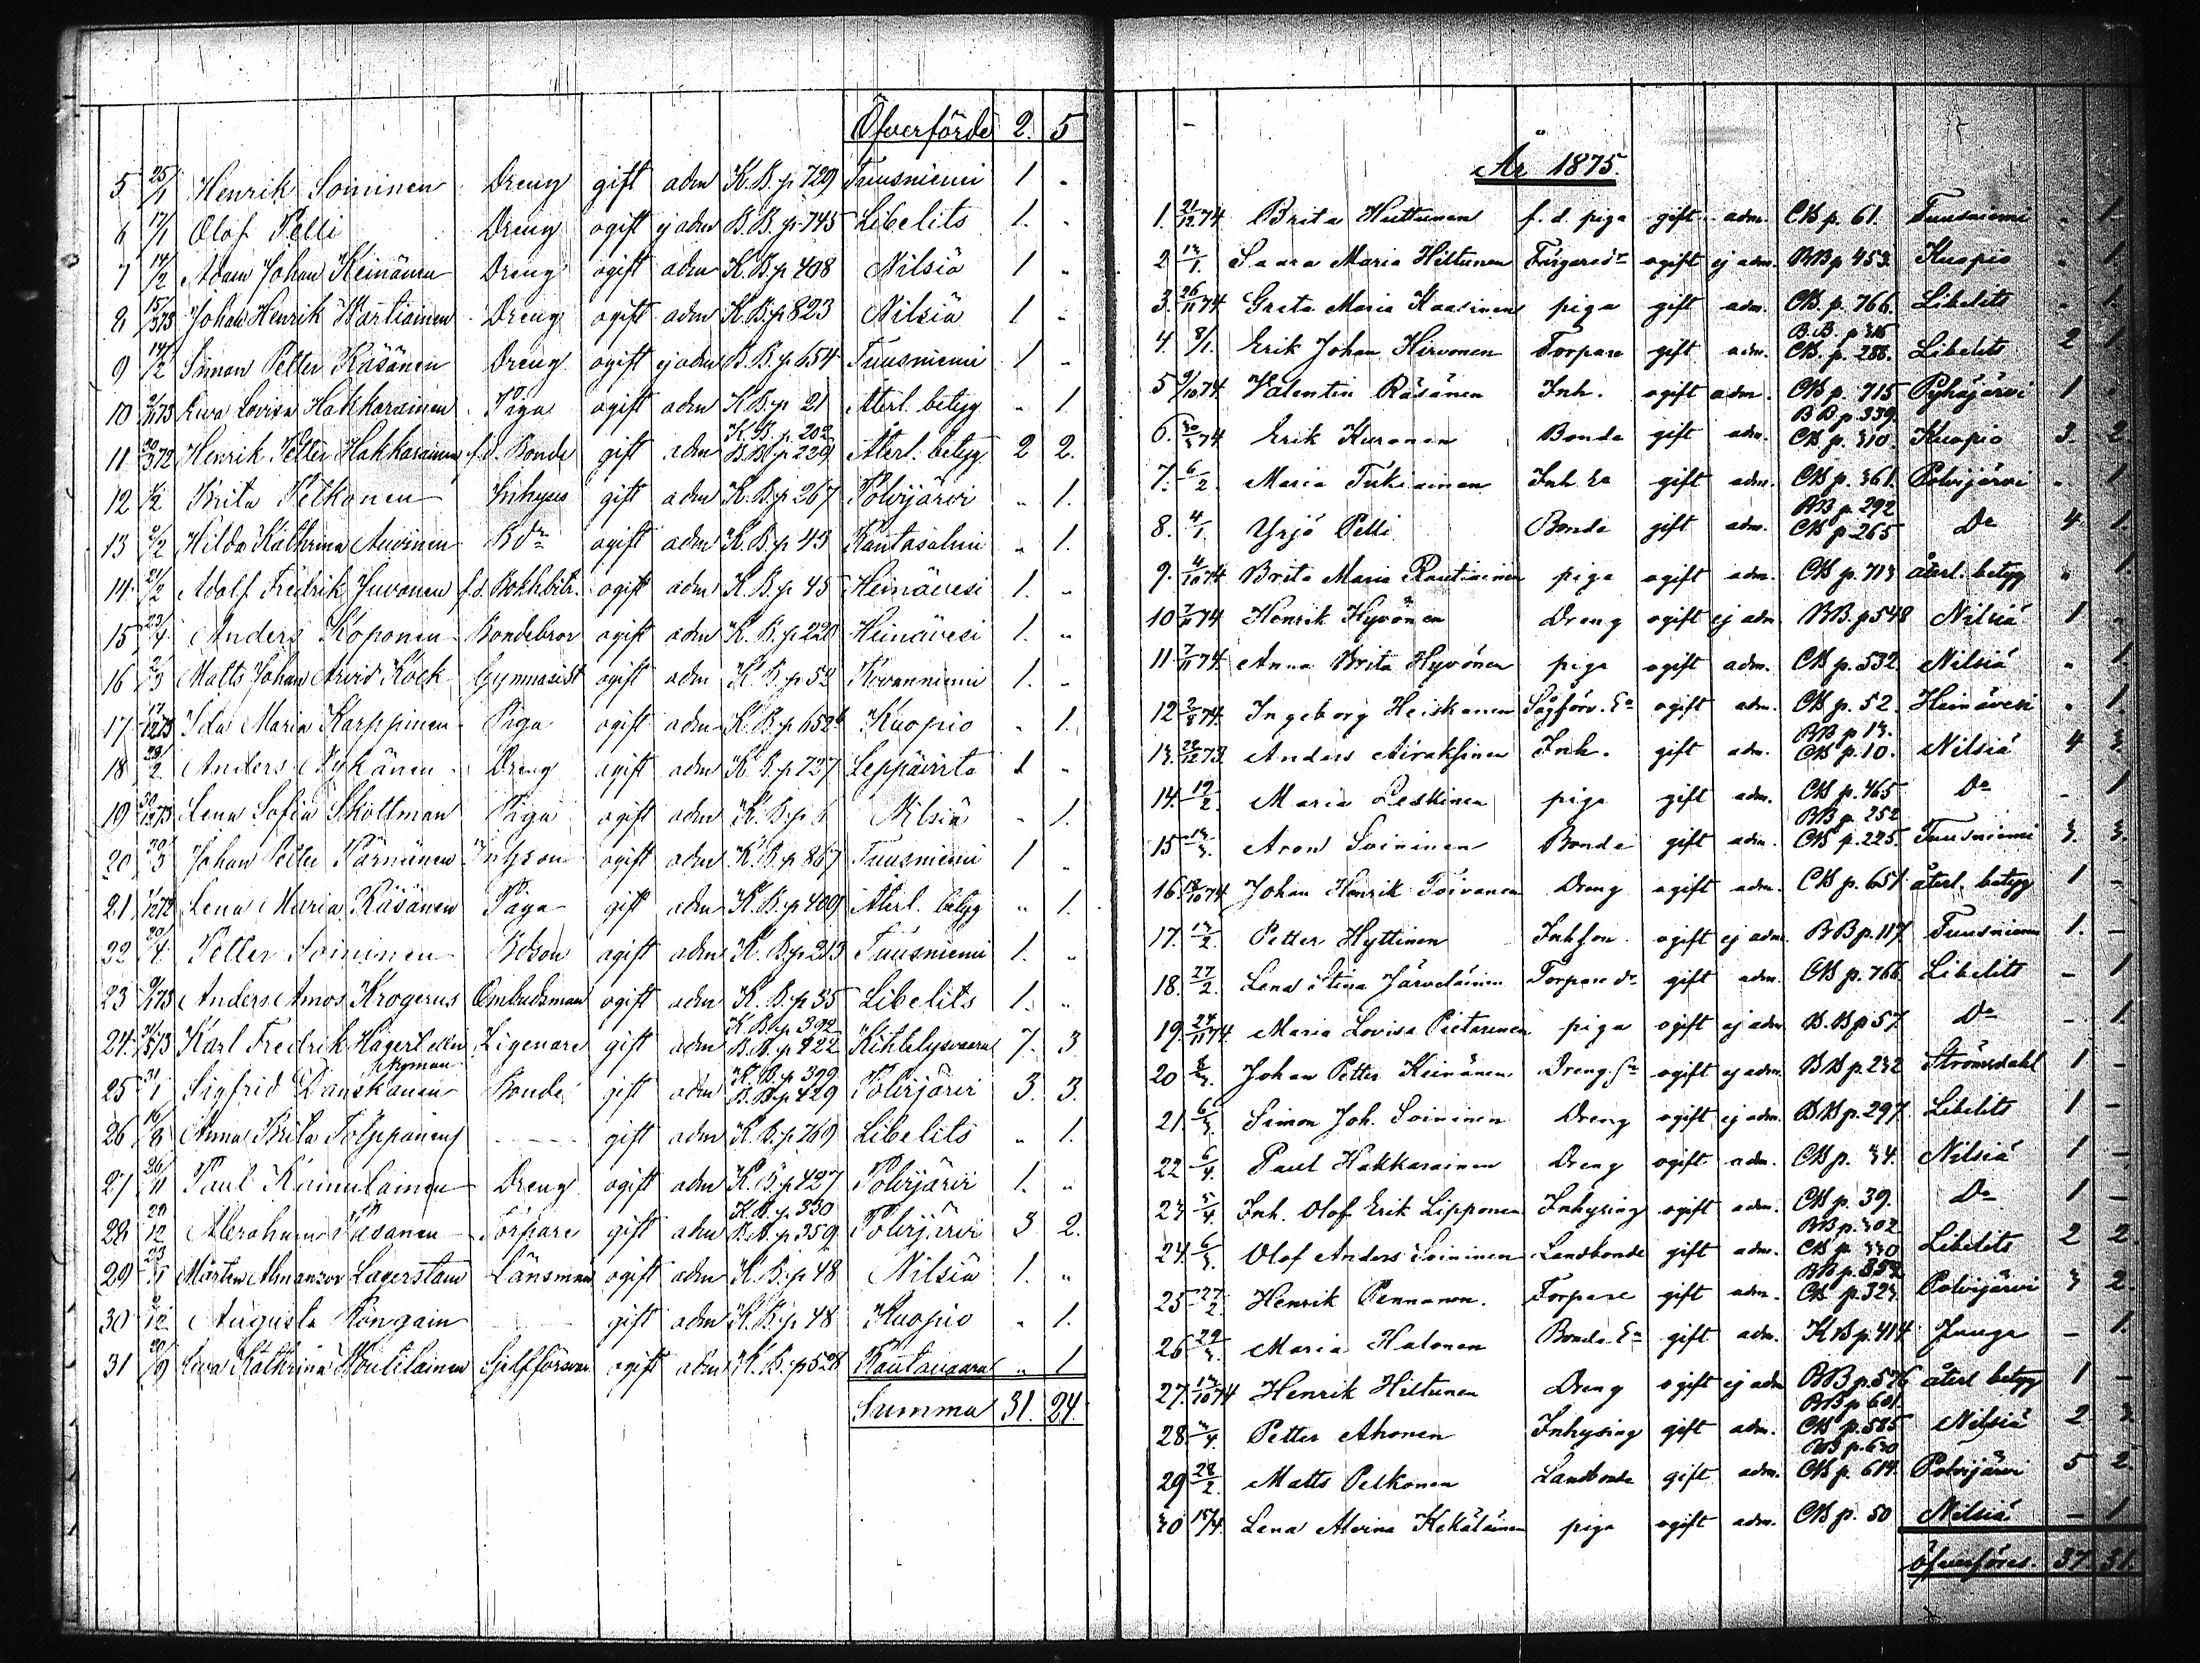 Öfverförde 2. 5
5 25/1 Henrik Soininen Dreng gift adm K.B. p 729 Tuusniemi 1 "
6 17/1 Olof Pelli Dreng ogift ej adm B.B. p 745 Libelits 1. "
7 14/2 Adam Johan Keinänen Dreng ogift adm K.B. p 408 Nilsiä 1 "
8 Johan Henrik Wartiainen Dreng ogift adm K.B. p 823 Nilsiä 1 "
9 14/2 Simon Petter Räsänen Dreng ogift ej adm B.B. p 654 Tuusniemi 1 "
10 Ewa Lovisa Hakkarainen Piga ogift adm K.B. p 21 Återl. betyg " 1.
K.B. p. 202
11 Henrik Petter Hakkarainen f.d. Bonde gift adm B.B. p 229 Återl. betyg 2 2.
12 Brita Pelkonen Inhyses gift adm K.B. p 267 Polvijärvi " 1.
13 Hilda Kathrina Auvinen Bdr ogift adm K.B. p 43 Rantasalmi " 1.
14 21/2 Adolf Fredrik Juvonen f.d. Bokhbitr. ogift adm K.B. p 45 Heinävesi 1. "
15 23/4 Anders Koponen Bondebror ogift adm K.B. p 221 Heinävesi 1. "
16 Matts Johan Arvid Kock Gymnasist ogift adm K.B. p 52 Kovanniemi 1. "
17 Ida Maria Karppinen Piga ogift adm K.B. p 652 Kuopio " 1.
18 Anders Nykänen Dreng ogift adm K.B. p 737 Leppävirta 1 "
19 Lena Sofia Skoltman Piga ogift adm K.B. p 6 Nilsiä " 1.
20 Johan Petter Pärnänen Inhyson ogift adm K.B. p 867 Tuusniemi 1 "
21 Lena Maria Räsänen Piga gift adm K.B. p 409 Återl. betyg " 1.
22 Petter Soininen Bdson ogift adm K.B. p 213 Tuusniemi 1. "
23 Anders Amos Krogerus Ombudsman ogift adm K.B. p 35 Libelits 1. "
K.B. p 392
24 Karl Fredrik Hagert eller Egenare gift adm B.B. p 422 Kihtelysvaara 7. 3
Nyman K.B. p 399
25 31/1 Sigfrid Danskanen Bonde gift adm B.B. p 429 Polvijärvi 3. 3.
26 16/8 Anna Brita Tolppanen gift adm K.B. p 769 Libelits " 1.
27 26/11 Paul Kainulainen Dreng ogift adm K.B. p 427 Polvijärvi 1. "
K.B. p. 330
28 Abraham Pesanen Torpare gift adm B.B. p 359 Polvijärvi 3 2.
29 Mårten Almanzor Lagerstam Länsman ogift adm K.B. p 48 Nilsiä 1. "
30 Augusta Röngain gift adm K.B. p 48 Kuopio " 1.
31 Ewa Kathrina Woutilainen Sjelfförsörj ogift adm K.B. p 528 Rautavaara " 1
Summa 31. 24.
År 1875.
1. 21/12 74 Brita Huttunen f. d. piga gift adm. CB p. 61. Tuusniemi " 1.
2 13/1. Saara Maria Hiltunen Färgaredr ogift ej adm. BB p 453. Kuopio " 1
3. 26/11 74 Greta Maria Kaasinen piga gift adm. CB. p. 766. Libelits " 1.
B.B. p 315
4. 8/1. Erik Johan Hirvonen Torpare gift adm. CB. p. 288. Libelits 2 1.
5 9/10 74 Valentin Räsänen Inh. ogift adm. CB p. 715 Pyhäjärvi 1 "
BB p. 339.
6. 30/3 74 Erik Kuronen Bonde gift adm. CB p. 310. Kuopio 3. 2
7. 6/2. Maria Tukiainen Inh. Ea gift adm. CB p. 361. Polvijärvi " 1
BB p. 292
8. 4/1. Yrjö Pelli Bonde gift adm. CB p. 265 Do 4 1.
9. 4/10 74 Brita Maria Rautiainen piga ogift adm. CB p. 713 återl. betyg " 1.
10 7/11 74 Henrik Hyvönen Dreng ogift ej adm BB. p 548 Nilsiä 1 "
11 7/11 74. Anna Brita Hyvönen piga ogift adm. CB p. 532 Nilsiä " 1.
12 2/8 74. Ingeborg Heiskanen Sågförv. Ea ogift adm. CB p. 52. Heinävesi " 1.
BB p 13.
13. 22/12 73. Anders Airaksinen Inh. gift adm. CB p. 10. Nilsiä 4 3.
14. 19/2. Maria Leskinen piga gift adm. CB p. 465 Do _ 1
BB p. 252
15 13/3. Aron Soininen Bonde gift adm. CB p. 225. Tuusniemi 3. 3.
16. 13/10 74 Johan Henrik Toivanen Dreng ogift adm. CB p. 651 återl. betyg 1 –
17. 13/2. Petter Hyttinen Inhson. ogift ej adm. BB p. 117. Tuusniemi 1. –
18. 27/2. Lena Stina Järveläinen Torpare dr gift adm. CB p. 766 Libelits – 1
19. 24/11 74. Maria Lovisa Pietarinen piga ogift ej adm B.B p 57. Do – 1.
20 8/3. Johan Petter Keinänen Dreng. Sn ogift ej adm. BB p. 232 Strömsdahl 1 –
21. 6/3. Simon Joh. Soininen Dreng ogift ej adm. BB p. 297. Libelits 1 –
22 6/4. Paul Hakkarainen Dreng ogift adm. CB p. 34. Nilsiä 1 –
23 5/4. Inh. Olof Erik Lipponen Inhysing ogift adm. CB p. 39. Do 1 –
BB p. 302
24. 6/3. Olof Anders Soininen Landbonde gift adm. CB p. 330 Libelits 2 2.
BB p. 353
25 27/2 Henrik Pennanen. Torpare gift adm. CB p. 323. Polvijärvi 3 2.
26 22/3. Maria Halonen Bonde. Ea gift adm. KB p. 414 Juuga – 1.
27. 13/10 74 Henrik Hiltunen Dreng ogift ej adm BB p. 576 återl betyg 1 –
BB p 601.
28. 3/4. Petter Ahonen Inhysing gift adm. CB p. 585 Nilsiä 2 3.
BB p. 630
29 28/2. Matts Pelkonen Landbonde gift adm. CB p. 614. Polvijärvi 5 2.
30 15/4. Lena Alvina Kekäläinen piga ogift adm. CB p. 50 Nilsiä – 1.
öfverföres. 37. 31.